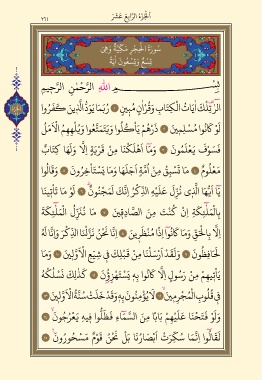 الجزء الرابع عشر
٢٦١
سورة الحجر مكية وهي
تسع وتسعون آية
بسم الله الرحمن الرحيم
الر تلك آيات الكتاب وقرآن مبين ربما يود الذين كفروا
لو كانوا مسلمين ذرهم يأكلوا ويتمتعوا ويلههم الأمل
فسوف يعلمون وما أهلكنا من قرية إلا ولها كتاب
معلوم ما تسبق من أمة أجلها وما يستأخرون وقالوا
يا أيها الذي نزل عليه الذكر إنك لمجنون لو ما تأتينا
بالملئكة إن كنت من الصادقين ما ننزل الملئكة
إلا بالحق وما كانوا إذا منظرين إنا نحن نزلنا الذكر وإنا له
لحافظون ولقد أرسلنا من قبلك في شيع الأولين وما
يأتيهم من رسول إلا كانوا به يستهزؤن كذلك نسلكه
في قلوب المجرمين لا يؤمنون به وقد خلت سنة الأولين
ولو فتحنا عليهم بابا من السماء فظلوا فيه يعرجون
لقالوا إنما سكرت أبصارنا بل نحن قوم مسحورون